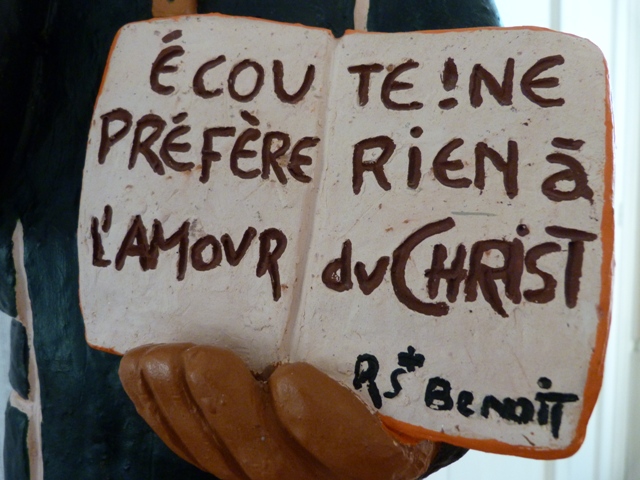 ÉCOUTE! NE
PRÉFÈRE RIEN à
L'AMOUR du CHRIST
RS* BENOIT